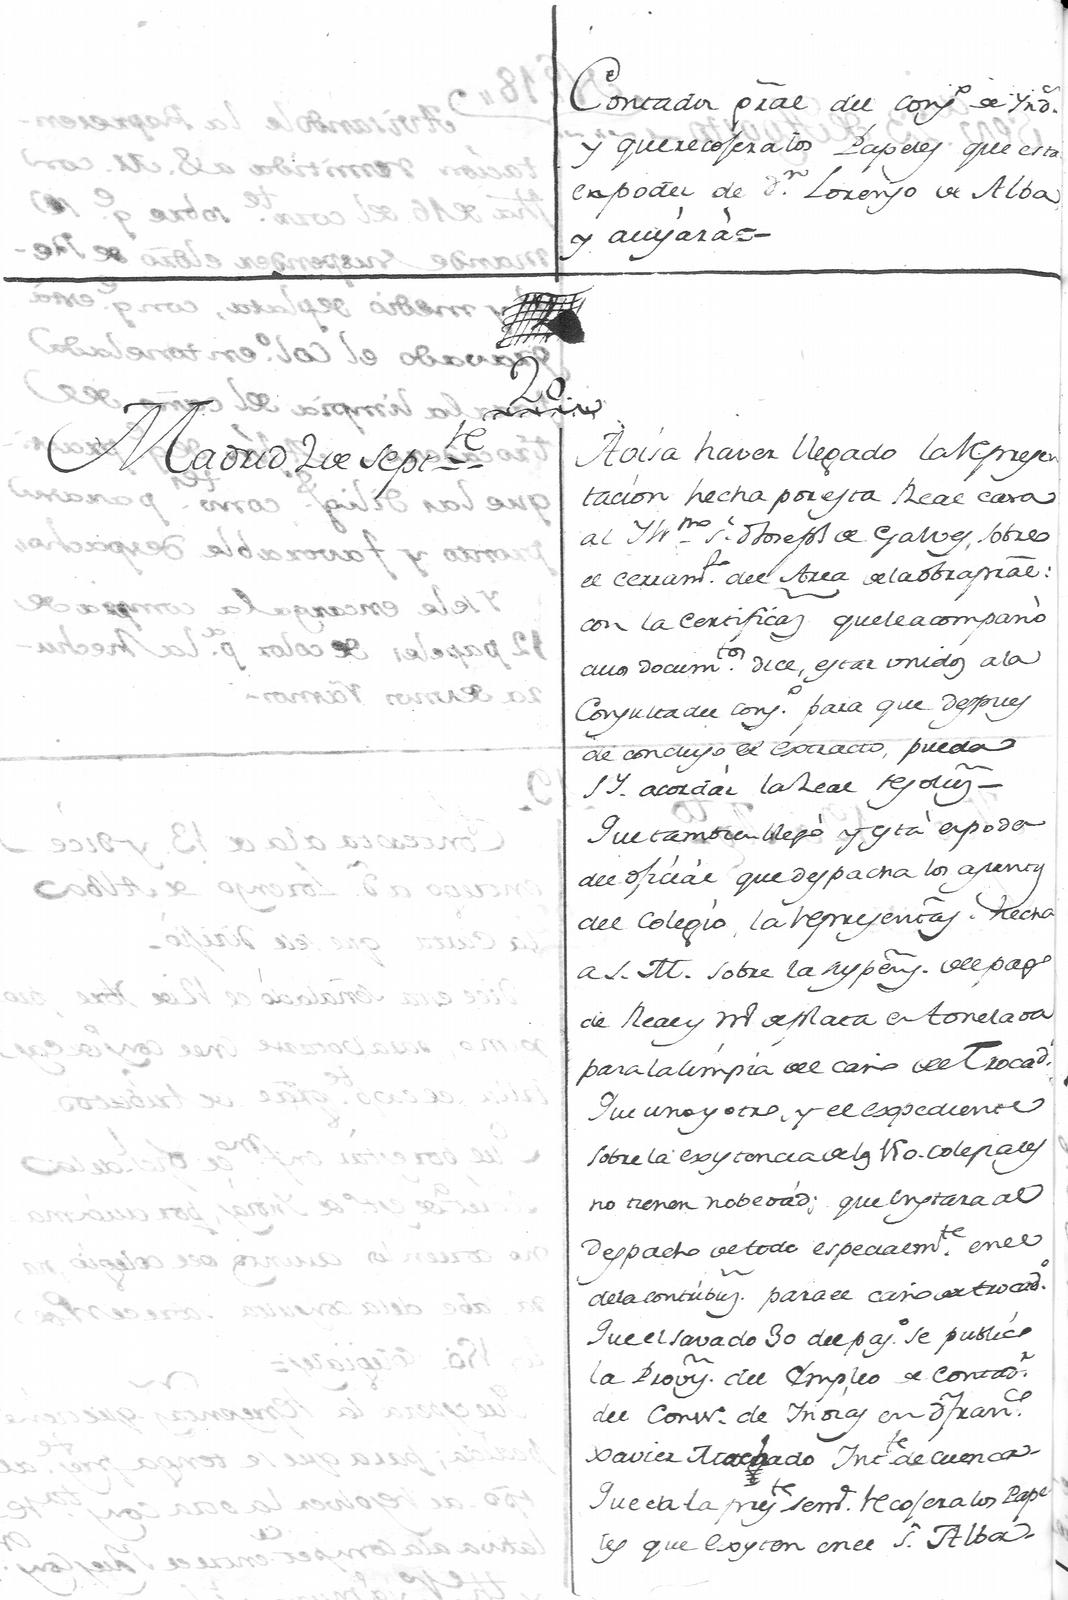 Contador gral del Conjo de Yndˢ.
y que recojera los Papeles que esta
en poder de Dn. Lorenzo de Alba
y avisará=
20
Madrid 2 de Septte
Avisa haver llegado la Represen
tacion hecha por esta Real Casa
al Yllmo Sr. Dn Joseph de Galvez, sobre
el cerramto. del Area de la obra pral:
con la Certificaz que le acompañó
cuios documtos. dice, estar unidos a la
Consulta del Conjo. para que despues
de concluso el extracto, pueda
S Y. acordár la Real resoluz—
Que tambien llegó y está en poder
del oficiál que despacha los asuntos
del Colegio, la representaz. hecha
a S. M. sobre la suspens. del pago
de Real y mo de Plata en tonelada
para la limpia del caño del Trocado.
Que uno y otro, y el expediente
sobre la existencia de los 150. colegiales
no tienen nobedad; que instara al
despacho de todo especialmte. en el
de la contribuz. para el caño del trocado.
Que el Savado 30 del pasdo. se publicó
la Provis. del Empleo de Contadr.
del Consº. de Indias en Dn Franco.
Xavier Machado Yntte de Cuenca-
Que en la preste semª. recojera los Pape
les que existen en el Sr. Alba-